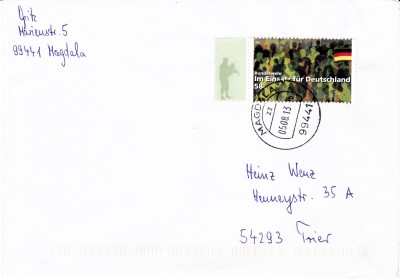 Opitz
Marienstr. 5
99441 Magdala
Bundeswehr
Im Einsatz für Deutschland
58
MAGDALA
05.08.13
99441
Heinz Wenz
Henneystr. 35 A
54293 Trier